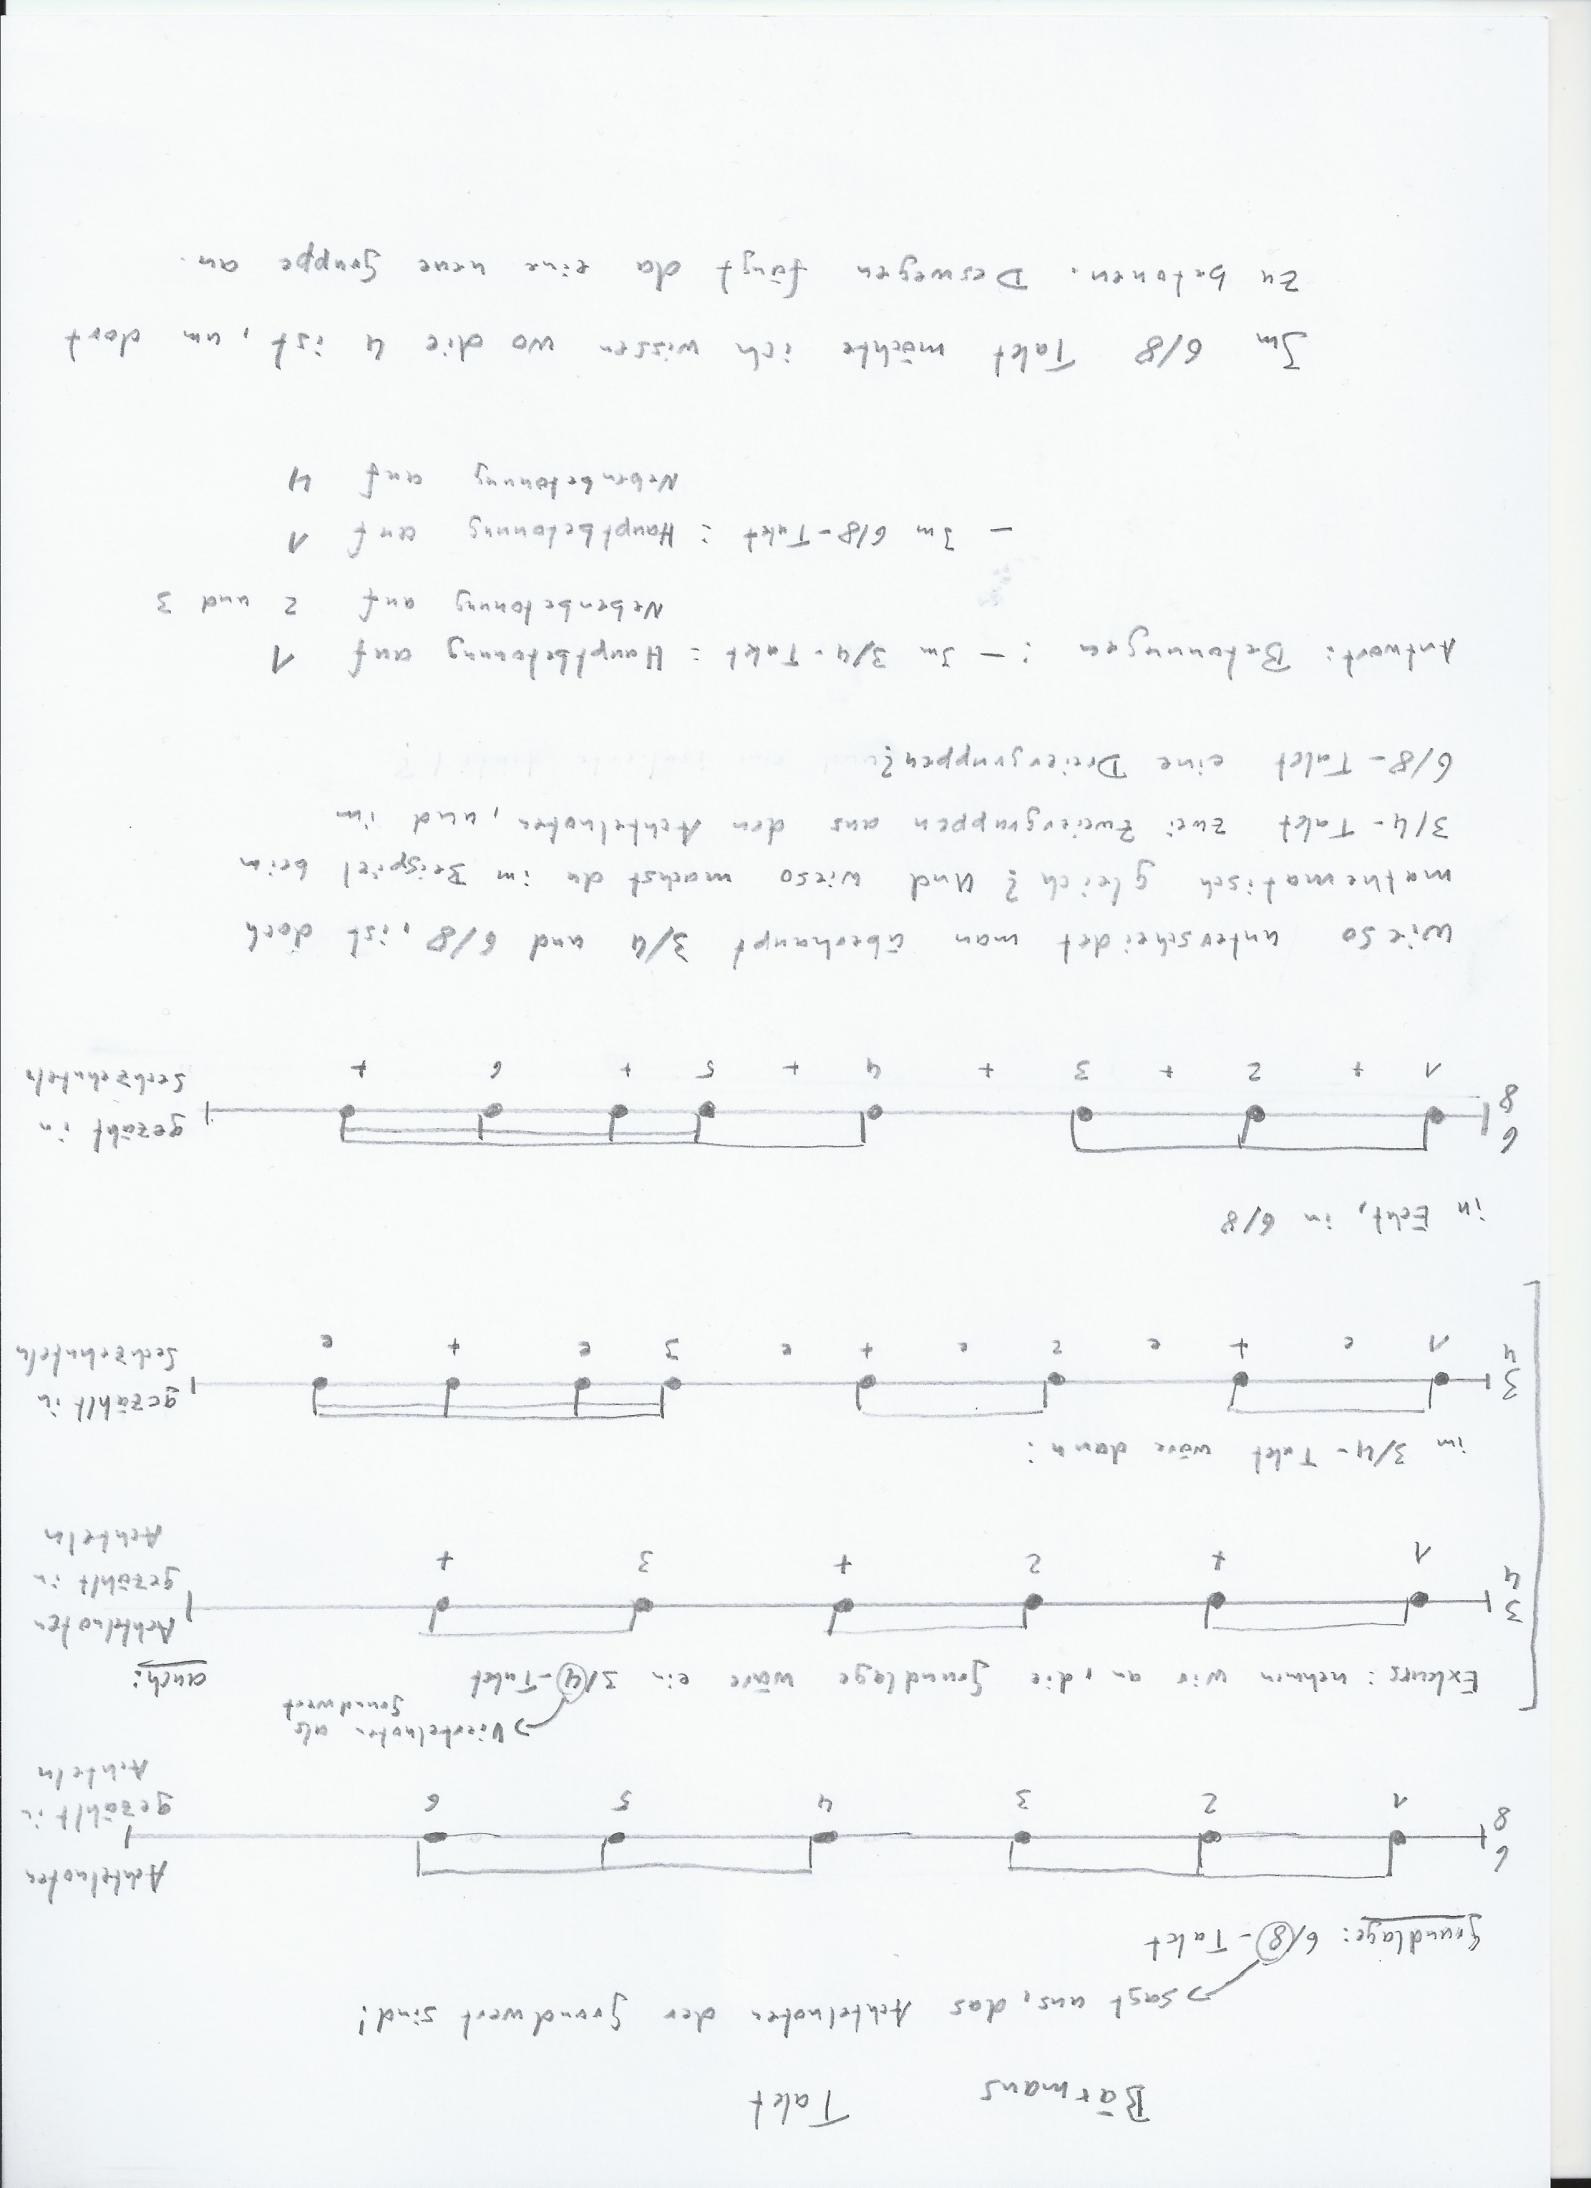 Bärmans Takt
sagt aus, das Achtelnoten der Grundwert sind!
Grundlage: 6/8-Takt
6
8
Achtelnoten
gezählt in
Achteln
1 2 3 4 5 6
Viertelnoten als
Grundwert
Exkurs: nehmen wir an, die Grundlage wäre ein 3/4-Takt
auch:
3
4
Achtelnoten
gezählt in
Achteln
1 + 2 + 3 +
im 3/4-Takt wäre dann:
3
4
gezählt in
Sechzehnteln
1 e + e 2 e + e 3 e + e
in Echt, im 6/8
6
8
gezählt in
Sechzehnteln
1 + 2 + 3 + 4 + 5 + 6 +
Wieso unterscheidet man überhaupt 3/4 und 6/8, ist doch
mathematisch gleich? Und wieso machst du im Beispiel beim
3/4-Takt zwei Zweiergruppen aus den Achtelnoten, und im
6/8-Takt eine Dreiergruppen?
Antwort: Betonungen: - Im 3/4-Takt: Hauptbetonung auf 1
Nebenbetonung auf 2 und 3
- Im 6/8-Takt: Hauptbetonung auf 1
Nebenbetonung auf 4
Im 6/8 Takt möchte ich wissen wo die 4 ist, um dort
zu betonen. Deswegen fängt da eine neue Gruppe an.